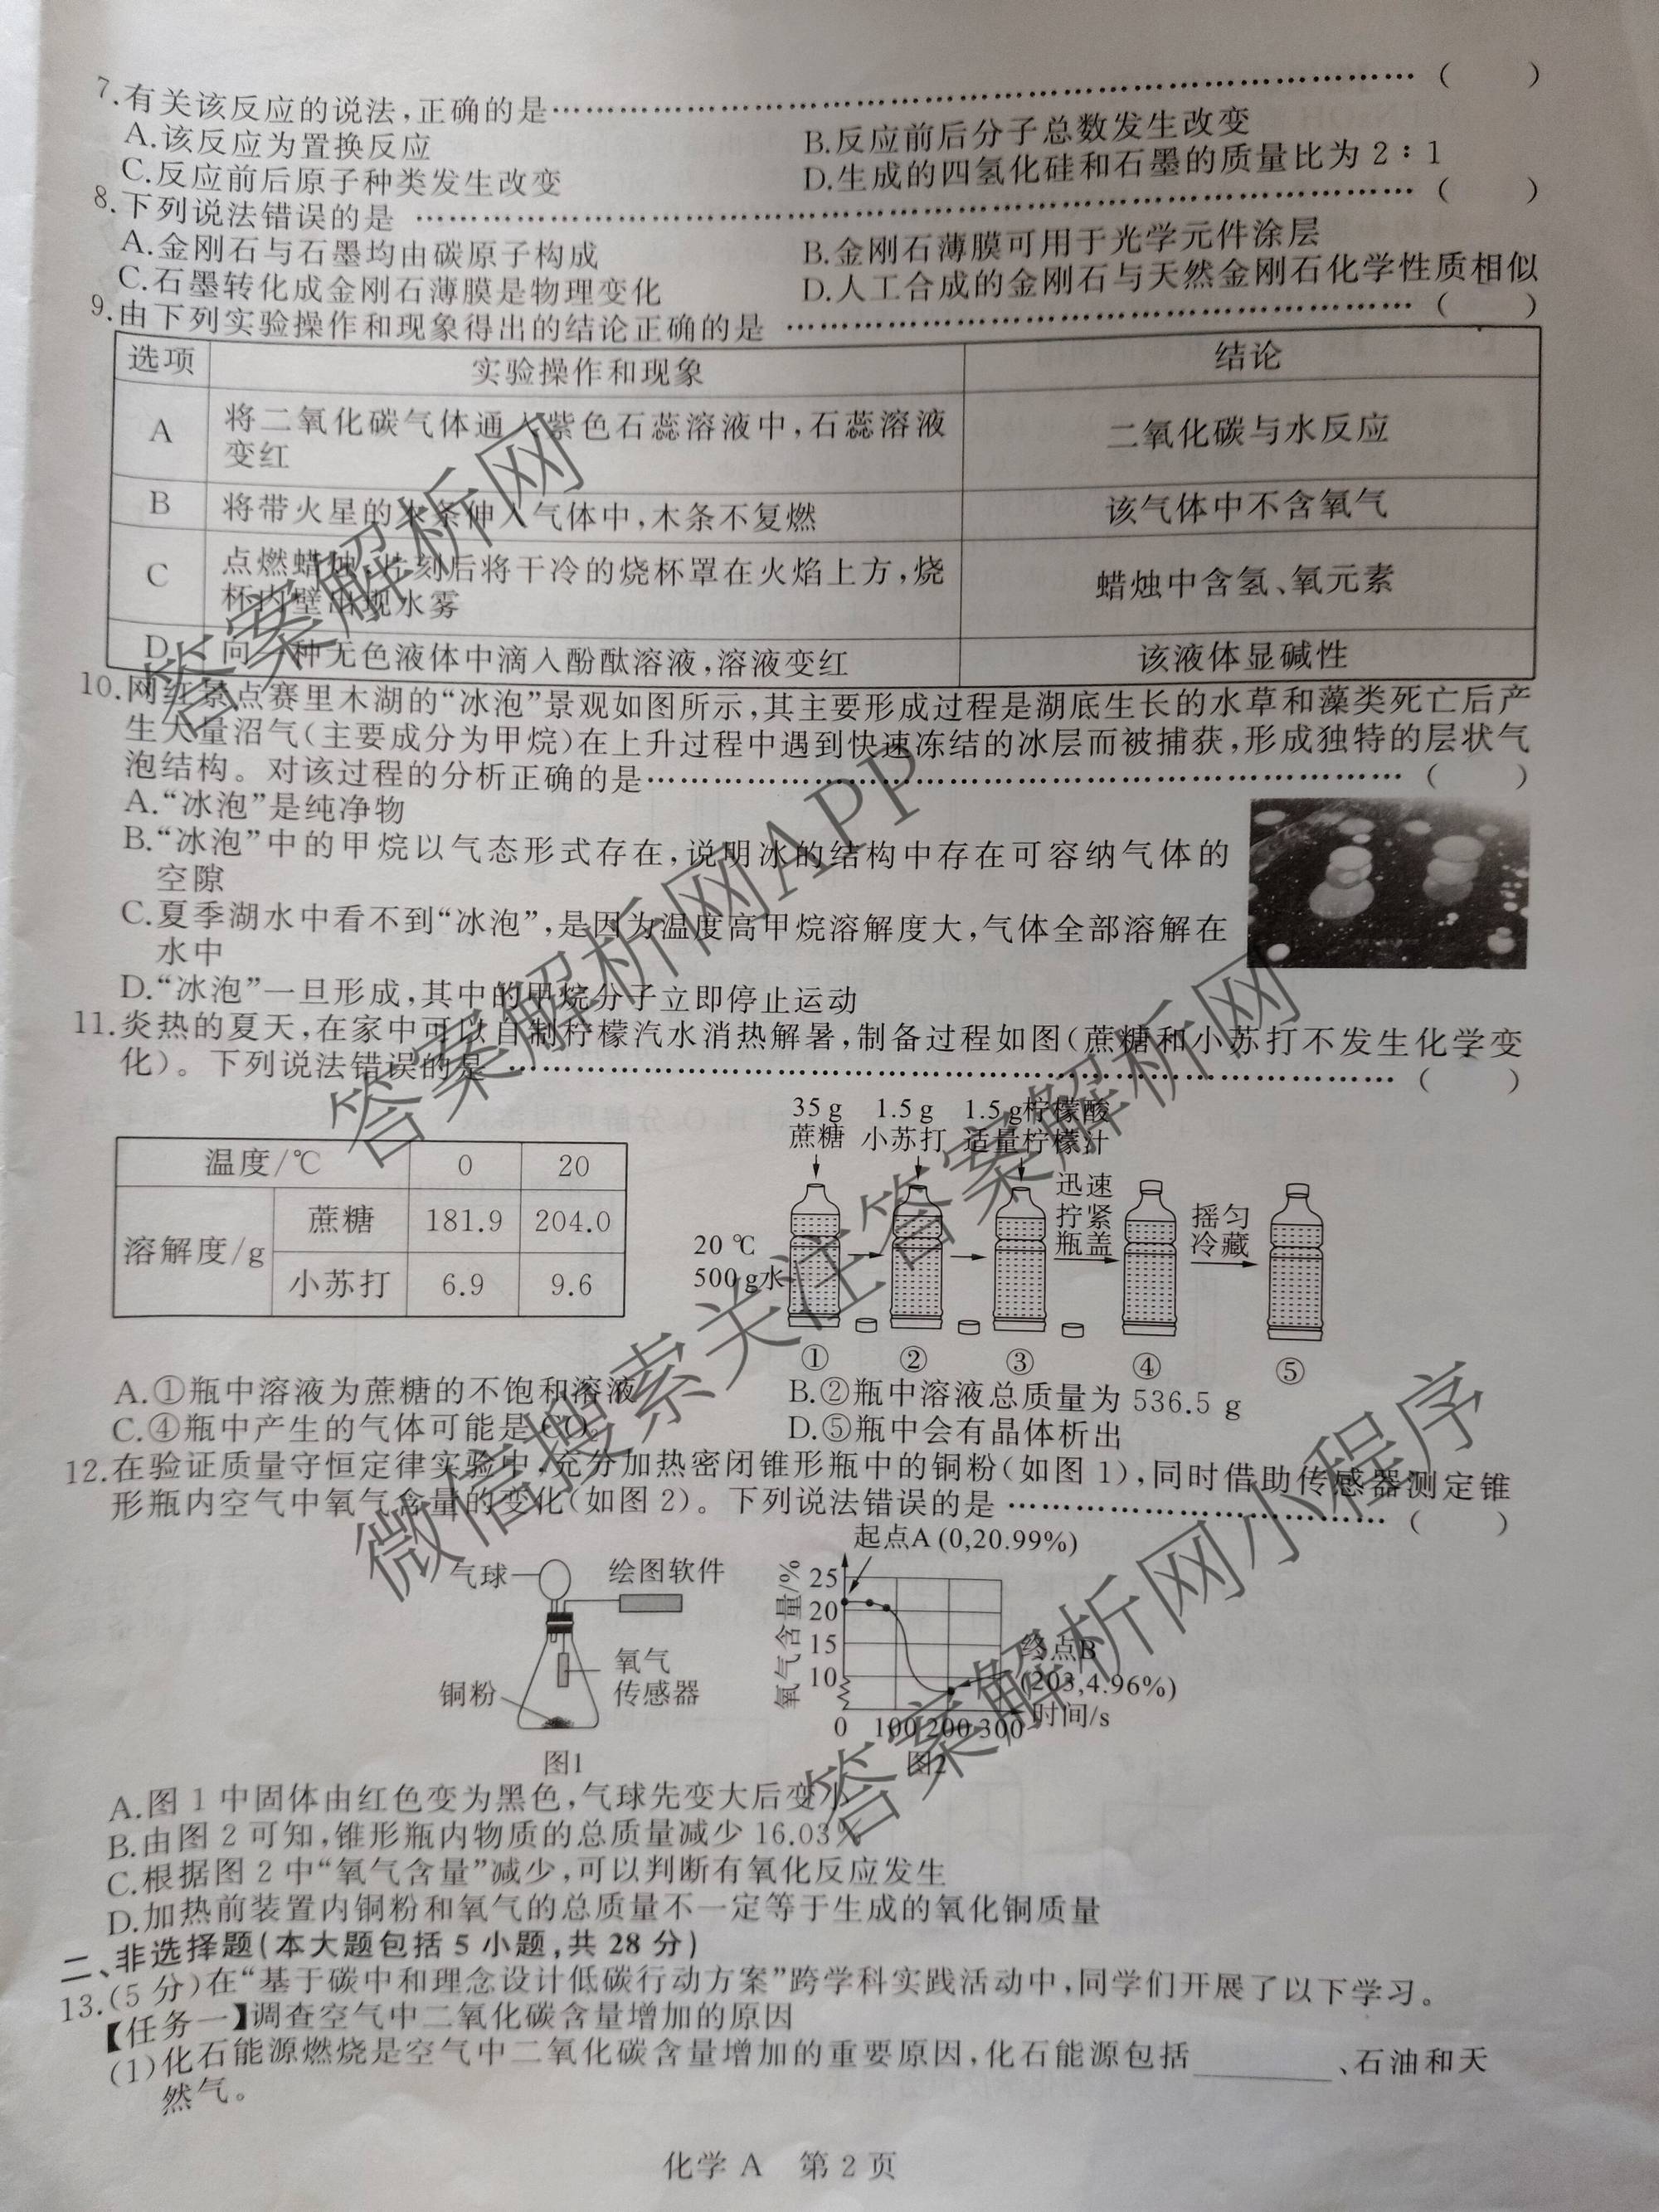 7.有关该反应的说法,正确的是……( )
A.该反应为置换反应 B.反应前后分子总数发生改变
C.反应前后原子种类发生改变 D.生成的四氢化硅和石墨的质量比为2∶1
8.下列说法错误的是……( )
A.金刚石与石墨均由碳原子构成 B.金刚石薄膜可用于光学元件涂层
C.石墨转化成金刚石薄膜是物理变化 D.人工合成的金刚石与天然金刚石化学性质相似
9.由下列实验操作和现象得出的结论正确的是……( )
选项 实验操作和现象 结论
A 将二氧化碳气体通入紫色石蕊溶液中,石蕊溶液
变红 二氧化碳与水反应
B 将带火星的木条伸入气体中,木条不复燃 该气体中不含氧气
C 点燃蜡烛,片刻后将干冷的烧杯罩在火焰上方,烧
杯内壁出现水雾 蜡烛中含氢、氧元素
D 向一种无色液体中滴入酚酞溶液,溶液变红 该液体显碱性
10.网红景点赛里木湖的“冰泡”景观如图所示,其主要形成过程是湖底生长的水草和藻类死亡后产
生大量沼气(主要成分为甲烷)在上升过程中遇到快速冻结的冰层而被捕获,形成独特的层状气
泡结构。对该过程的分析正确的是……( )
A.“冰泡”是纯净物
B.“冰泡”中的甲烷以气态形式存在,说明冰的结构中存在可容纳气体的
空隙
C.夏季湖水中看不到“冰泡”,是因为温度高甲烷溶解度大,气体全部溶解在
水中
D.“冰泡”一旦形成,其中的甲烷分子立即停止运动
11.炎热的夏天,在家中可以自制柠檬汽水消热解暑,制备过程如图(蔗糖和小苏打不发生化学变
化)。下列说法错误的是……( )
35 g 1.5 g 1.5 g柠檬酸
蔗糖 小苏打 适量柠檬汁
温度/℃ 0 20
溶解度/g 蔗糖 181.9 204.0
小苏打 6.9 9.6
20 ℃
500 g水
迅速
拧紧
瓶盖
摇匀
冷藏
① ② ③ ④ ⑤
A.①瓶中溶液为蔗糖的不饱和溶液 B.②瓶中溶液总质量为 536.5 g
C.④瓶中产生的气体可能是CO₂ D.⑤瓶中会有晶体析出
12.在验证质量守恒定律实验中,充分加热密闭锥形瓶中的铜粉(如图1),同时借助传感器测定锥
形瓶内空气中氧气含量的变化(如图2)。下列说法错误的是……( )
气球 绘图软件
氧气
传感器
铜粉
图1
起点A (0,20.99%)
氧气含量/%
25
20
15
10
0 100 200 300 时间/s
终点B
(203,4.96%)
图2
A.图1中固体由红色变为黑色,气球先变大后变小
B.由图2可知,锥形瓶内物质的总质量减少16.03%
C.根据图2中“氧气含量”减少,可以判断有氧化反应发生
D.加热前装置内铜粉和氧气的总质量不一定等于生成的氧化铜质量
二、非选择题(本大题包括5小题,共28分)
13.(5分)在“基于碳中和理念设计低碳行动方案”跨学科实践活动中,同学们开展了以下学习。
【任务一】调查空气中二氧化碳含量增加的原因
(1)化石能源燃烧是空气中二氧化碳含量增加的重要原因,化石能源包括________、石油和天
然气。
化学 A 第2页
答案解析网
答案解析网APP
微信搜索关注答案解析网
答案解析网小程序